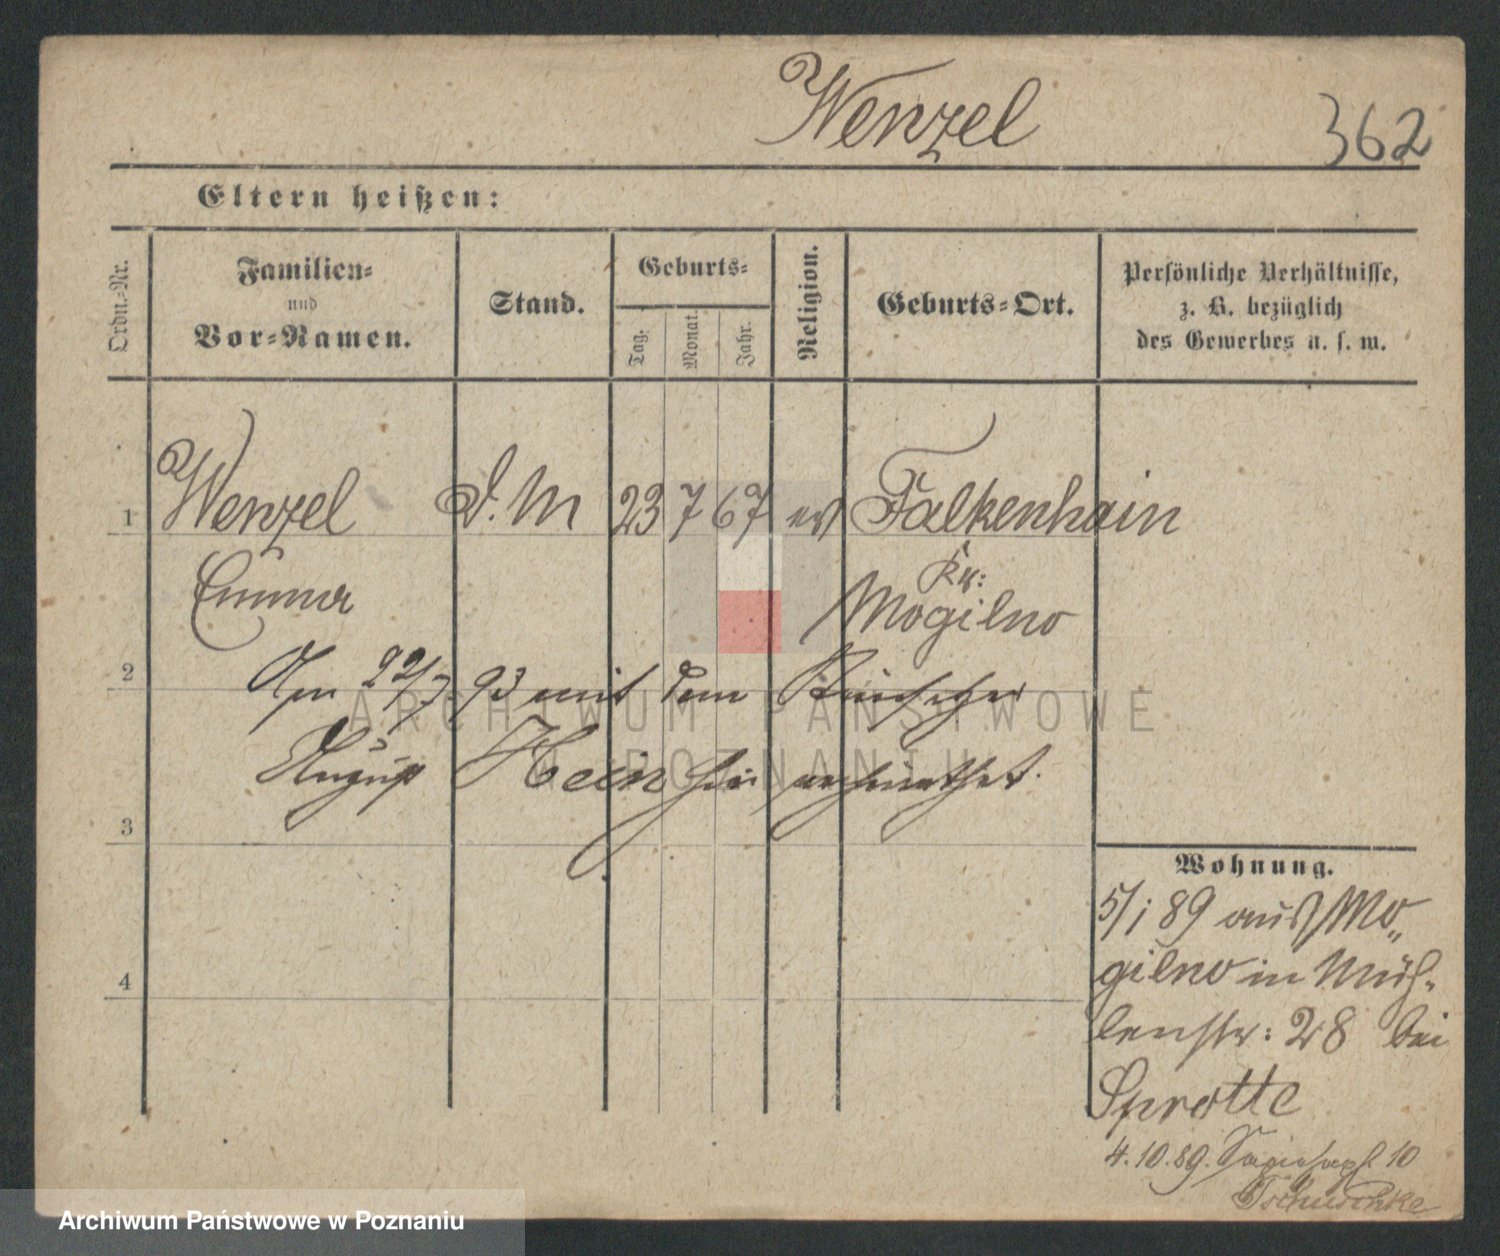 Wenzel
362
Eltern heißen:
Ordn.-Nr.
Familien-
und
Vor-Namen.
Stand.
Geburts-
Tag.
Monat.
Jahr.
Religion.
Geburts-Ort.
Persönliche Verhältnisse,
z. B. bezüglich
des Gewerbes u. s. w.
1 Wenzel D. M 23 7 67 ev Falkenhain
Emma Kr: Mogilno
2 Am 22/7 93 mit dem Kutscher
August Hein hier verheirathet.
3
4
Wohnung.
5/1 89 aus Mo„
gilno in Müh-
lenstr: 28 bei
Sprotte
4.10.89. 10
Tschuschke
ARCHIWUM PAŃSTWOWE
W POZNANIU
Archiwum Państwowe w Poznaniu